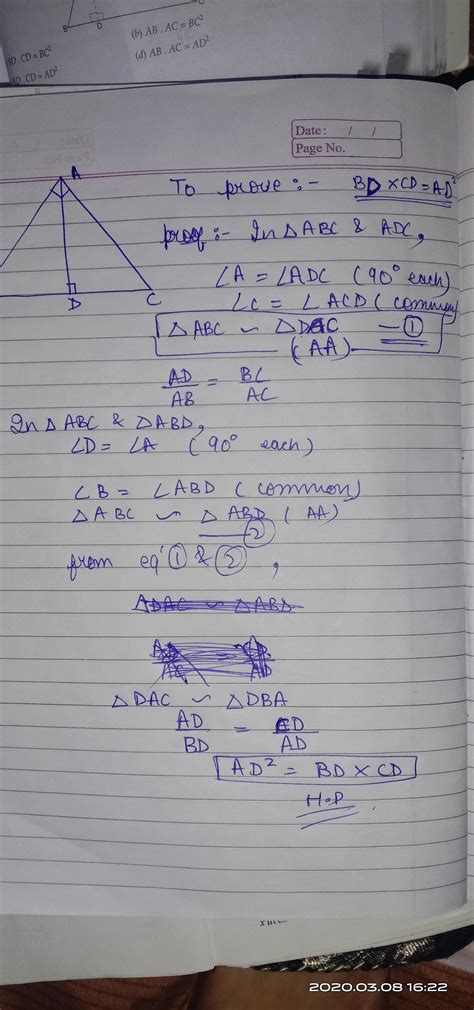 B D C
(b) AB . AC = BC²
BD . CD = BC²
(d) AB . AC = AD²
BD . CD = AD²
Date : / /
Page No.
A
To prove :- BD × CD = AD²
proof :- In △ ABC & ADC,
∠A = ∠ADC (90° each)
∠C = ∠ACD (common)
D C
△ABC ∽ △DAC — ①
(AA)
AD/AB = BC/AC
In △ ABC & △ABD,
∠D = ∠A (90° each)
∠B = ∠ABD (common)
△ABC ∽ △ABD (AA)
— ②
from eq' ① & ②,
△DAC ∽ △ABD
△DAC ∽ △DBA
AD/BD = CD/AD
AD² = BD × CD
H.P
2020.03.08 16:22